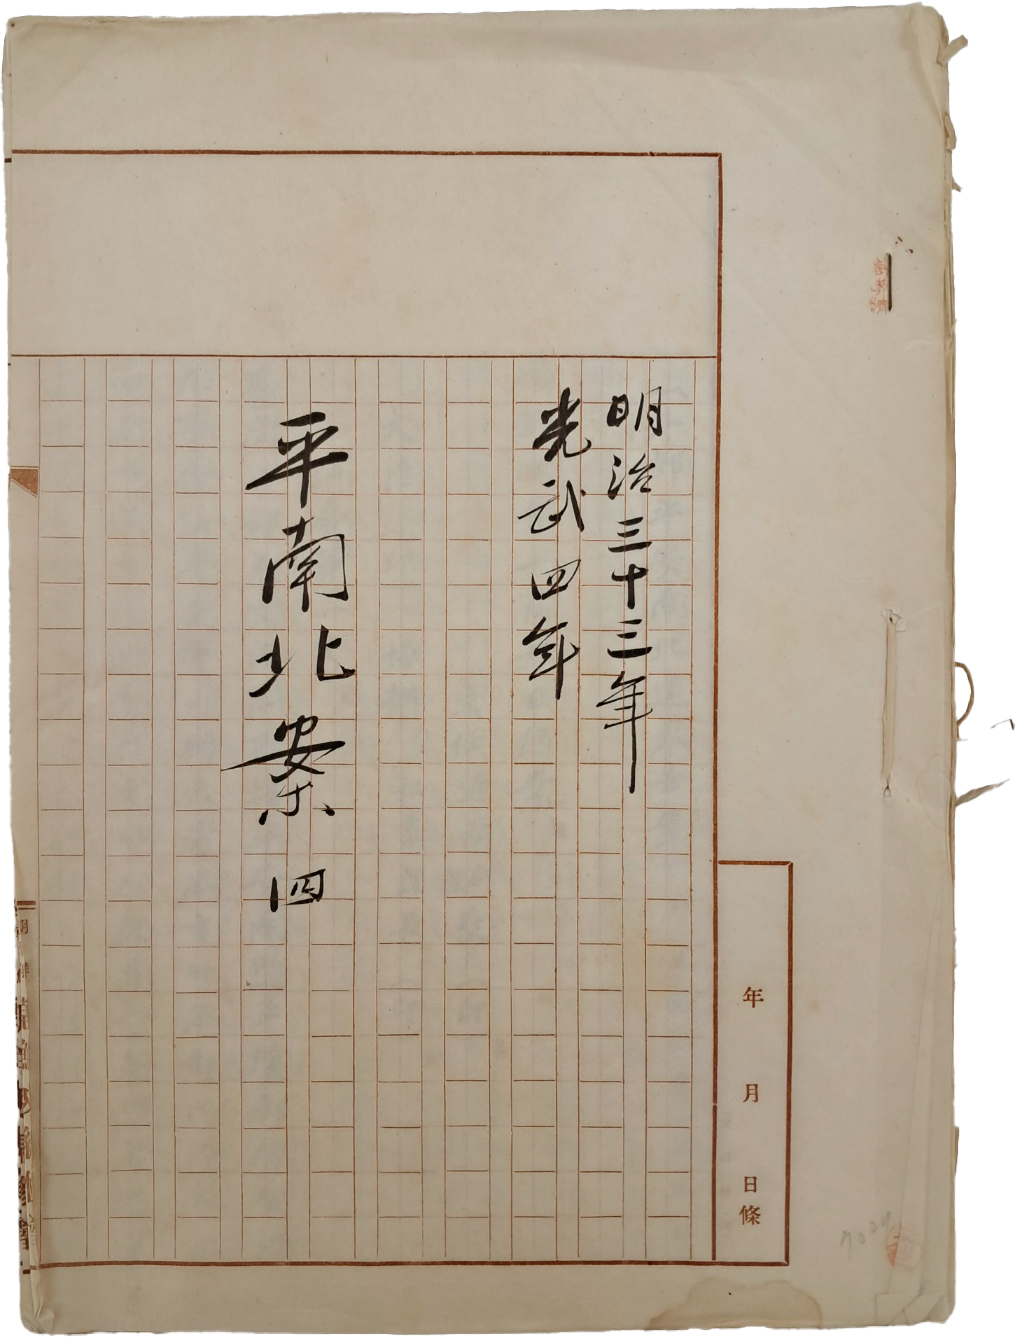 明治三十三年
光武四年
平南北案 四
年 月 日條